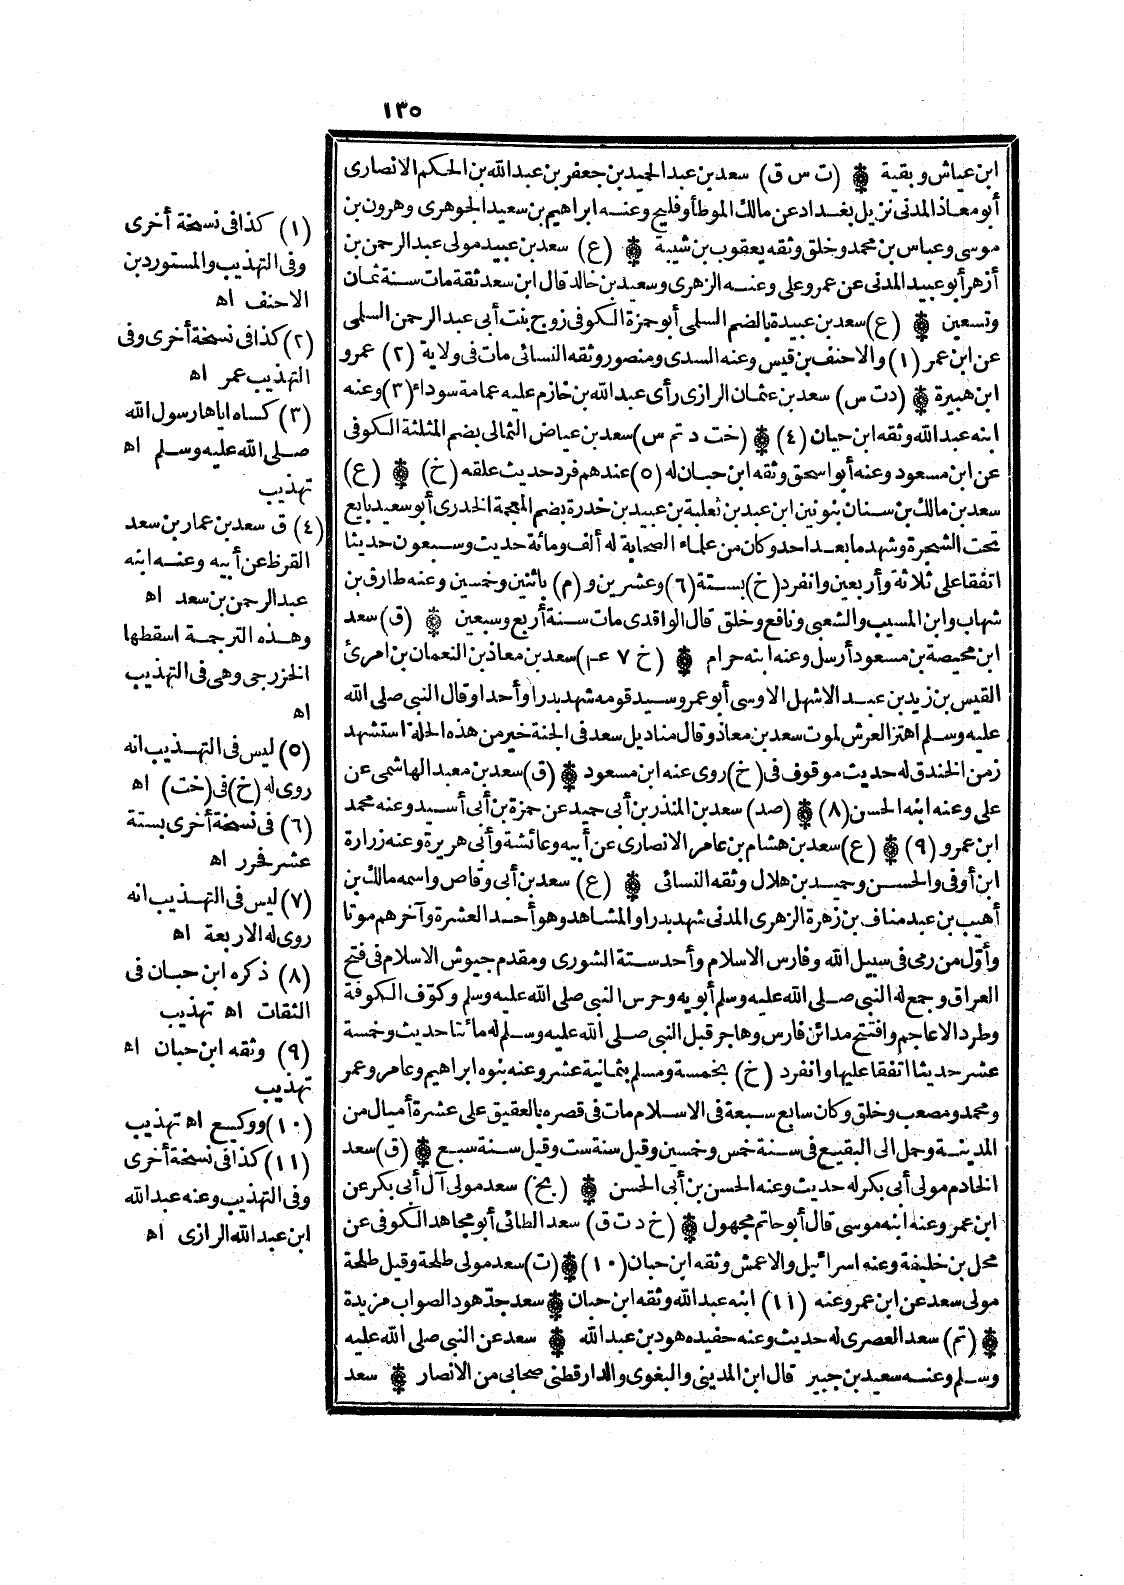 ١٣٥
ابن عياش وبقية ۞ (ت س ق) سعد بن عبد الحميد بن جعفر بن عبد الله بن الحكم الانصارى
أبو معاذ المدنى نزيل بغداد عن مالك الموطأ وفليح وعنه ابراهيم بن سعيد الجوهرى وهرون بن
موسى وعباس بن محمد وخلق وثقه يعقوب بن شيبة ۞ (ع) سعد بن عبيد مولى عبد الرحمن بن
أزهر أبو عبيد المدنى عن عمرو على وعنه الزهرى وسعيد بن خالد قال ابن سعد ثقة مات سنة ثمان
وتسعين ۞ (ع) سعد بن عبيدة بالضم السلمى أبو حمزة الكوفى زوج بنت أبى عبد الرحمن السلمى
عن ابن عمر (١) والاحنف بن قيس وعنه السدى ومنصور وثقه النسائى مات فى ولاية (٢) عمرو
ابن هبيرة ۞ (د ت س) سعد بن عثمان الرازى رأى عبد الله بن خازم عليه عمامة سوداء (٣) وعنه
ابنه عبد الله وثقه ابن حبان (٤) ۞ (خت د تم س) سعد بن عياض الثمالى بضم المثلثة الكوفى
عن ابن مسعود وعنه أبو اسحق وثقه ابن حبان له (٥) عندهم فرد حديث علقه (خ) ۞ (ع)
سعد بن مالك بن سنان بنونين ابن عبد بن ثعلبة بن عبيد بن خدرة بضم المعجمة الخدرى أبو سعيد بايع
تحت الشجرة وشهد ما بعد احد وكان من علماء الصحابة له ألف ومائة حديث وسبعون حديثا
اتفقا على ثلاثة وأربعين وانفرد (خ) بستة (٦) وعشرين و (م) باثنين وخمسين وعنه طارق بن
شهاب وابن المسيب والشعبى ونافع وخلق قال الواقدى مات سنة أربع وسبعين ۞ (ق) سعد
ابن محيصة بن مسعود أرسل وعنه ابنه حرام ۞ (خ ٧ عـ) سعد بن معاذ بن النعمان بن امرئ
القيس بن زيد بن عبد الاشهل الاوسى أبو عمرو سيد قومه شهد بدرا وأحدا وقال النبى صلى الله
عليه وسلم اهتز العرش لموت سعد بن معاذ وقال مناديل سعد فى الجنة خير من هذه الحلة استشهد
زمن الخندق له حديث موقوف فى (خ) روى عنه ابن مسعود ۞ (ق) سعد بن معبد الهاشمى عن
على وعنه ابنه الحسن (٨) ۞ (صد) سعد بن المنذر بن أبى حميد عن حمزة بن أبى أسيد وعنه محمد
ابن عمرو (٩) ۞ (ع) سعد بن هشام بن عامر الانصارى عن أبيه وعائشة وأبى هريرة وعنه زرارة
ابن أوفى والحسن وحميد بن هلال وثقه النسائى ۞ (ع) سعد بن أبى وقاص واسمه مالك بن
أهيب بن عبد مناف بن زهرة الزهرى المدنى شهد بدرا والمشاهد وهو أحد العشرة وآخرهم موتا
وأوّل من رمى فى سبيل الله وفارس الاسلام وأحد ستة الشورى ومقدم جيوش الاسلام فى فتح
العراق وجمع له النبى صلى الله عليه وسلم أبويه وحرس النبى صلى الله عليه وسلم وكوّف الكوفة
وطرد الاعاجم وافتتح مدائن فارس وهاجر قبل النبى صلى الله عليه وسلم له مائتا حديث وخمسة
عشر حديثا اتفقا عليها وانفرد (خ) بخمسة ومسلم بثمانية عشر وعنه بنوه ابراهيم وعامر وعمر
ومحمد ومصعب وخلق وكان سابع سبعة فى الاسلام مات فى قصره بالعقيق على عشرة أميال من
المدينة وحمل الى البقيع فى سنة خمس وخمسين وقيل سنة ست وقيل سنة سبع ۞ (ق) سعد
الخادم مولى أبى بكر له حديث وعنه الحسن بن أبى الحسن ۞ (بخ) سعد مولى آل أبى بكر عن
ابن عمر وعنه ابنه موسى قال أبو حاتم مجهول ۞ (خ د ت ق) سعد الطائى أبو مجاهد الكوفى عن
محل بن خليفة وعنه اسرائيل والاعمش وثقه ابن حبان (١٠) ۞ (ت) سعد مولى طلحة وقيل طلحة
مولى سعد عن ابن عمر وعنه (١١) ابنه عبد الله وثقه ابن حبان ۞ سعد جدّ هود الصواب مزيدة
۞ (تم) سعد العصرى له حديث وعنه حفيده هود بن عبد الله ۞ سعد عن النبى صلى الله عليه
وسلم وعنه سعيد بن جبير قال ابن المدينى والبغوى والدارقطنى صحابى من الانصار ۞ سعد
(١) كذا فى نسخة أخرى
وفى التهذيب والمستورد بن
الاحنف اه
(٢) كذا فى نسخة أخرى وفى
التهذيب عمر اه
(٣) كساه اياها رسول الله
صلى الله عليه وسلم اه
تهذيب
(٤) ق سعد بن عمار بن سعد
القرظ عن أبيه وعنه ابنه
عبد الرحمن بن سعد اه
وهذه الترجمة اسقطها
الخزرجى وهى فى التهذيب
اه
(٥) ليس فى التهذيب انه
روى له (خ) فى (خت) اه
(٦) فى نسخة أخرى بستة
عشر فحرر اه
(٧) ليس فى التهذيب انه
روى له الاربعة اه
(٨) ذكره ابن حبان فى
الثقات اه تهذيب
(٩) وثقه ابن حبان اه
تهذيب
(١٠) ووكيع اه تهذيب
(١١) كذا فى نسخة أخرى
وفى التهذيب وعنه عبد الله
ابن عبد الله الرازى اه